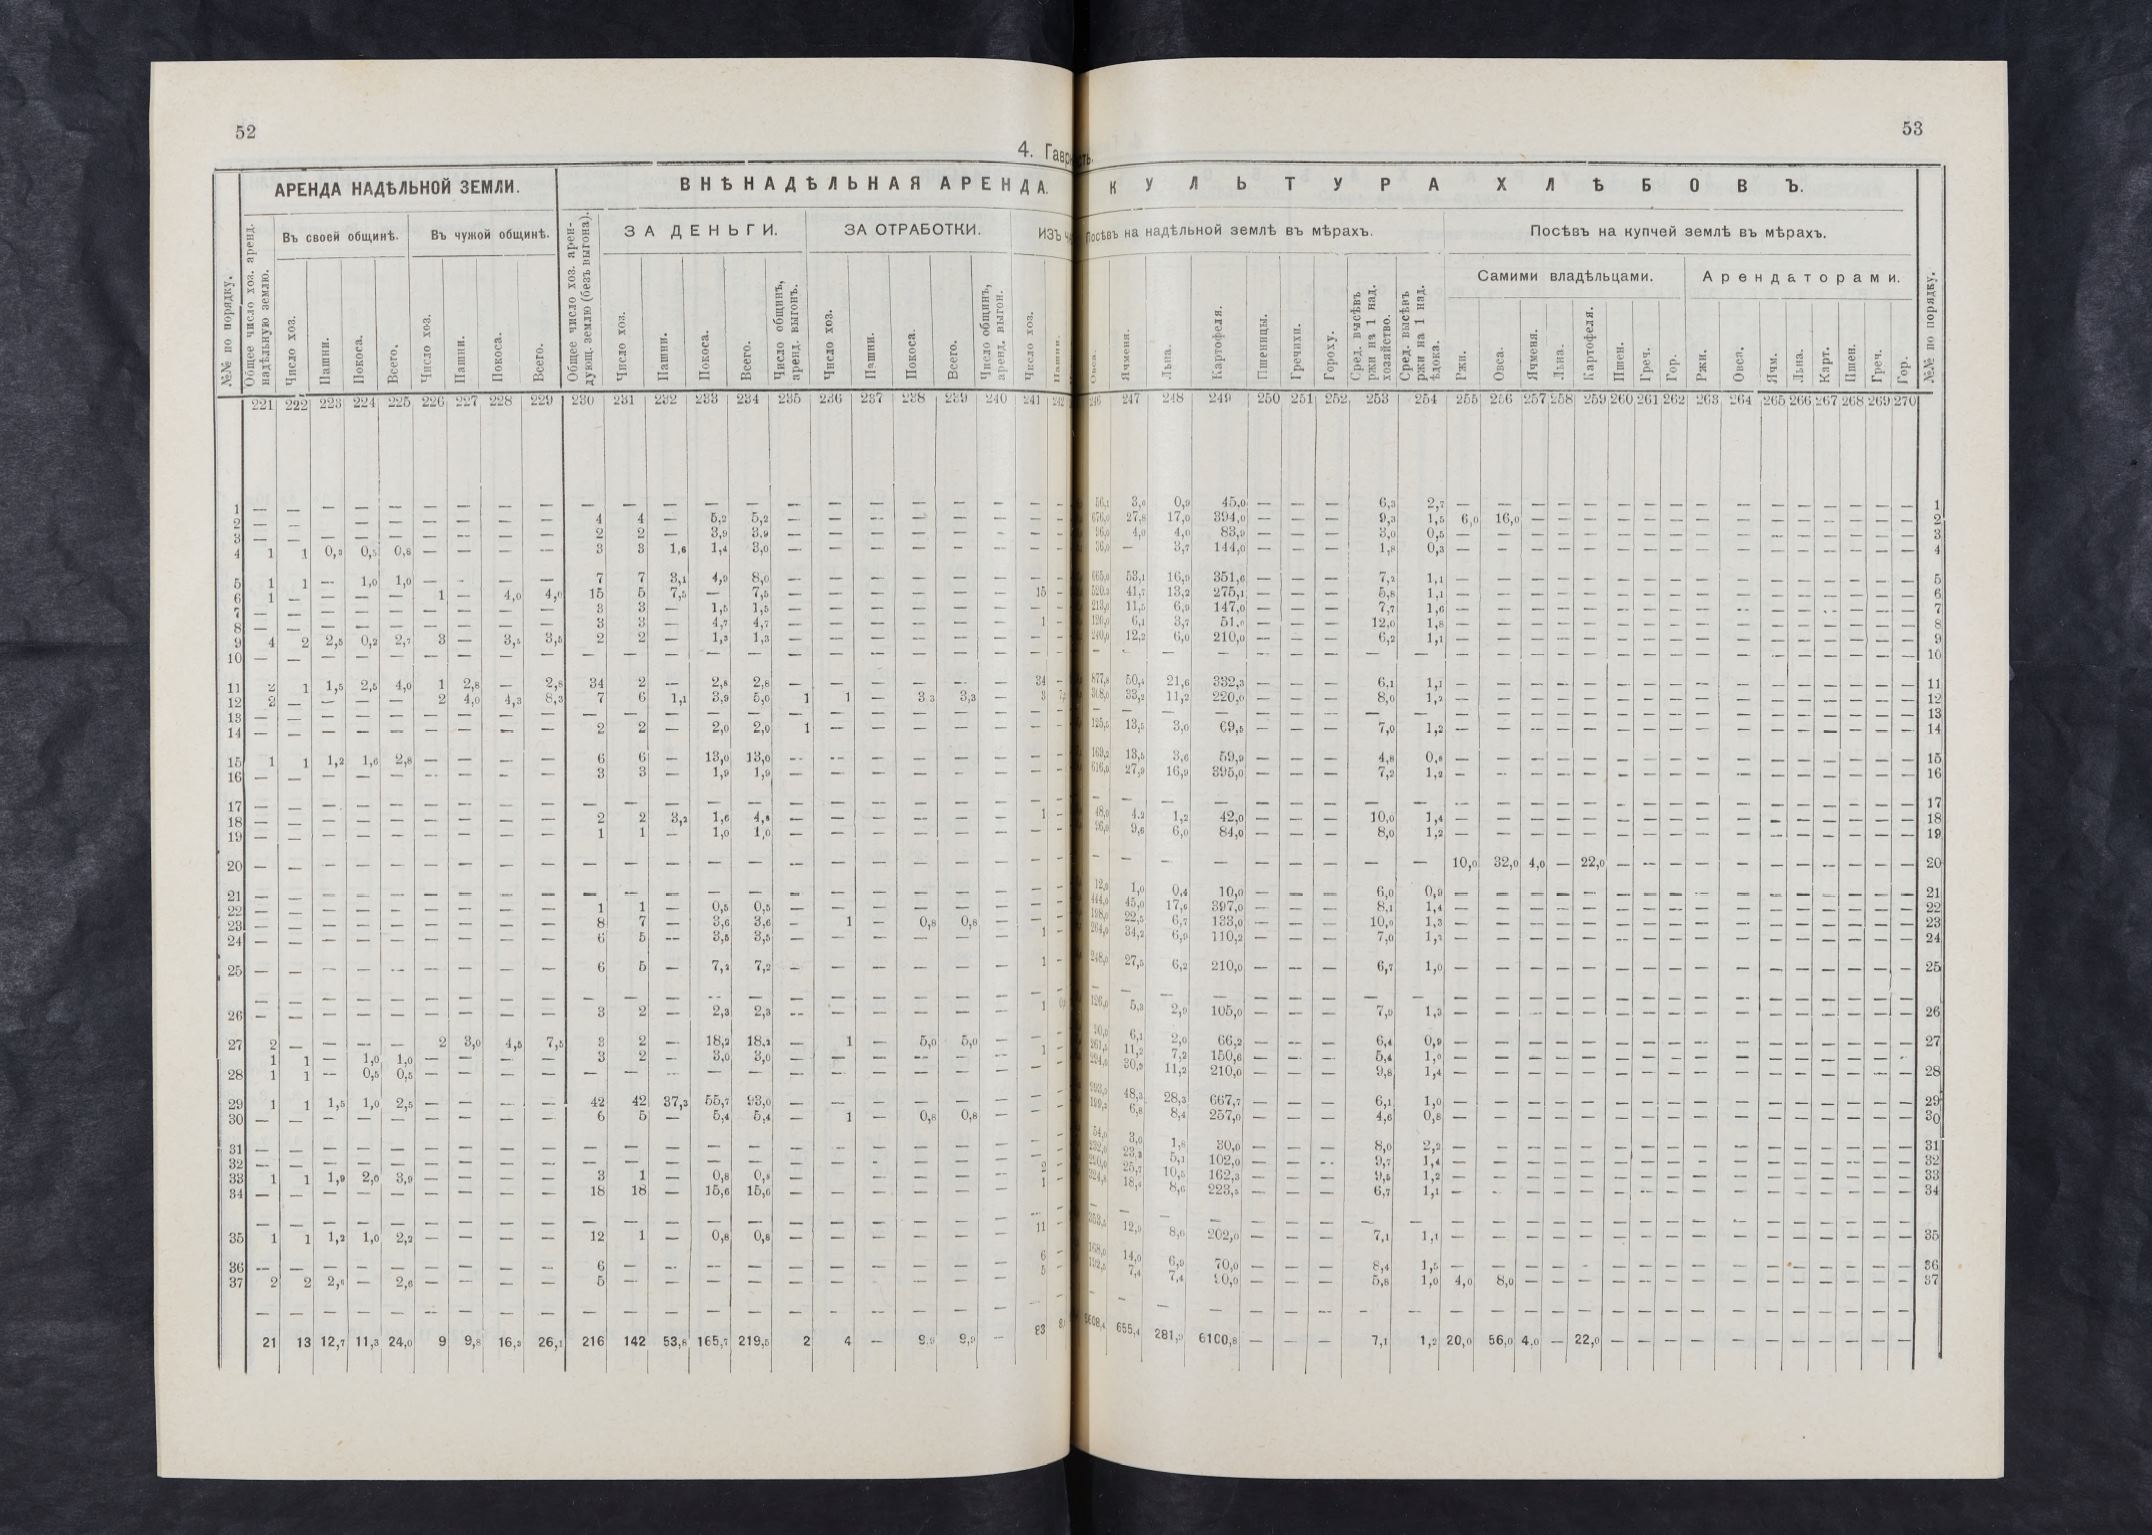 52
4. Гавр
АРЕНДА НАДѢЛЬНОЙ ЗЕМЛИ. ВНѢНАДѢЛЬНАЯ АРЕНДА.
Въ своей общинѣ. Въ чужой общинѣ. ЗА ДЕНЬГИ. ЗА ОТРАБОТКИ. ИЗЪ
№№ по порядку. Общее число хоз. аренд. надѣльную землю. Число хоз. Пашни. Покоса. Всего. Число хоз. Пашни. Покоса. Всего. Общее число хоз. арендующ. землю (безъ выгона). Число хоз. Пашни. Покоса. Всего. Число общинъ, аренд. выгонъ. Число хоз. Пашни. Покоса. Всего. Число общинъ, аренд. выгон. Число хоз. Пашни.
221 222 223 224 225 226 227 228 229 230 231 232 233 234 235 236 237 238 239 240 241 242
1 — — — — — — — — — — — — — — — — — — — — —
2 — — — — — — — — 4 4 — 5,2 5,2 — — — — — — —
3 — — — — — — — — 2 2 — 3,9 3,9 — — — — — — —
4 1 1 0,3 0,5 0,8 — — — — 3 3 1,6 1,4 3,0 — — — — — — —
5 1 1 — 1,0 1,0 — — — — 7 7 3,1 4,9 8,0 — — — — — — —
6 1 — — — — 1 — 4,0 4,0 15 5 7,5 — 7,5 — — — — — — 15
7 — — — — — — — — — 3 3 — 1,5 1,5 — — — — — — —
8 — — — — — — — — — 3 3 — 4,7 4,7 — — — — — — 1
9 4 2 2,5 0,2 2,7 3 — 3,5 3,5 2 2 — 1,3 1,3 — — — — — — —
10 — — — — — — — — — — — — — — — — — — — — —
11 2 1 1,5 2,5 4,0 1 2,8 — 2,8 34 2 — 2,8 2,8 — — — — — — 34
12 2 — — — — 2 4,0 4,3 8,3 7 6 1,1 3,9 5,0 1 1 — 3,3 3,3 — 3
13 — — — — — — — — — — — — — — — — — — — — —
14 — — — — — — — — — 2 2 — 2,0 2,0 1 — — — — — —
15 1 1 1,2 1,6 2,8 — — — — 6 6 — 13,0 13,0 — — — — — — —
16 — — — — — — — — — 3 3 — 1,9 1,9 — — — — — — —
17 — — — — — — — — — — — — — — — — — — — — —
18 — — — — — — — — — 2 2 3,2 1,6 4,8 — — — — — — 1
19 — — — — — — — — — 1 1 — 1,0 1,0 — — — — — — —
20 — — — — — — — — — — — — — — — — — — — — —
21 — — — — — — — — — — — — — — — — — — — — —
22 — — — — — — — — — 1 1 — 0,5 0,5 — — — — — — —
23 — — — — — — — — — 8 7 — 3,6 3,6 — 1 — 0,8 0,8 — —
24 — — — — — — — — — 6 5 — 3,5 3,5 — — — — — — 1
25 — — — — — — — — — 6 5 — 7,2 7,2 — — — — — — 1
— — — — — — — — — — — — — — — — — — — — —
26 — — — — — — — — — 3 2 — 2,3 2,3 — — — — — — 1
27 2 — — — — 2 3,0 4,5 7,5 3 2 — 18,2 18,2 — 1 — 5,0 5,0 — —
1 1 — 1,0 1,0 — — — — 3 2 — 3,0 3,0 — — — — — — 1
28 1 1 — 0,5 0,5 — — — — — — — — — — — — — — — —
29 1 1 1,5 1,0 2,5 — — — — 42 42 37,3 55,7 93,0 — — — — — — —
30 — — — — — — — — — 6 5 — 5,4 5,4 — 1 — 0,8 0,8 — —
31 — — — — — — — — — — — — — — — — — — — — —
32 — — — — — — — — — — — — — — — — — — — — —
33 1 1 1,9 2,0 3,9 — — — — 3 1 — 0,8 0,8 — — — — — — 2
34 — — — — — — — — — 18 18 — 15,6 15,6 — — — — — — 1
— — — — — — — — — — — — — — — — — — — — —
35 1 1 1,2 1,0 2,2 — — — — 12 1 — 0,8 0,8 — — — — — — 11
36 — — — — — — — — — 6 — — — — — — — — — — 6
37 2 2 2,6 — 2,6 — — — — 5 — — — — — — — — — — 5
— — — — — — — — — — — — — — — — — — — — —
21 13 12,7 11,3 24,0 9 9,8 16,3 26,1 216 142 53,8 165,7 219,5 2 4 — 9,9 9,9 — 83
53
ть.
КУЛЬТУРА ХЛѢБОВЪ.
Посѣвъ на надѣльной землѣ въ мѣрахъ. Посѣвъ на купчей землѣ въ мѣрахъ.
Самими владѣльцами. Арендаторами.
Овса. Ячменя. Льна. Картофеля. Пшеницы. Гречихи. Гороху. Сред. высѣвъ ржи на 1 над. хозяйство. Сред. высѣвъ ржи на 1 над. ѣдока. Ржи. Овса. Ячменя. Льна. Картофеля. Пшен. Греч. Гор. Ржи. Овса. Ячм. Льна. Карт. Пшен. Греч. Гор. №№ по порядку.
246 247 248 249 250 251 252 253 254 255 256 257 258 259 260 261 262 263 264 265 266 267 268 269 270
56,1 3,0 0,9 45,0 — — — 6,3 2,7 — — — — — — — — — — — — — — — — 1
676,0 27,8 17,0 394,0 — — — 9,3 1,5 6,0 16,0 — — — — — — — — — — — — — — 2
96,0 4,0 4,0 83,9 — — — 3,0 0,5 — — — — — — — — — — — — — — — — 3
36,0 — 3,7 144,0 — — — 1,8 0,3 — — — — — — — — — — — — — — — — 4
665,0 53,1 16,9 351,6 — — — 7,2 1,1 — — — — — — — — — — — — — — — — 5
520,3 41,7 13,2 275,1 — — — 5,8 1,1 — — — — — — — — — — — — — — — — 6
213,0 11,5 6,9 147,0 — — — 7,7 1,6 — — — — — — — — — — — — — — — — 7
126,0 6,1 3,7 51,0 — — — 12,0 1,8 — — — — — — — — — — — — — — — — 8
240,0 12,2 6,0 210,0 — — — 6,2 1,1 — — — — — — — — — — — — — — — — 9
— — — — — — — — — — — — — — — — — — — — — — — — — 10
877,8 50,4 21,6 332,3 — — — 6,1 1,1 — — — — — — — — — — — — — — — — 11
308,0 33,2 11,2 220,0 — — — 8,0 1,2 — — — — — — — — — — — — — — — — 12
— — — — — — — — — — — — — — — — — — — — — — — — — 13
125,5 13,5 3,0 69,5 — — — 7,0 1,2 — — — — — — — — — — — — — — — — 14
169,2 13,5 3,6 59,9 — — — 4,8 0,8 — — — — — — — — — — — — — — — — 15
616,0 27,9 16,9 395,0 — — — 7,2 1,2 — — — — — — — — — — — — — — — — 16
— — — — — — — — — — — — — — — — — — — — — — — — — 17
48,0 4,2 1,2 42,0 — — — 10,0 1,4 — — — — — — — — — — — — — — — — 18
96,0 9,6 6,0 84,0 — — — 8,0 1,2 — — — — — — — — — — — — — — — — 19
— — — — — — — — — 10,0 32,0 4,0 — 22,0 — — — — — — — — — — — 20
12,0 1,0 0,4 10,0 — — — 6,0 0,9 — — — — — — — — — — — — — — — — 21
444,0 45,0 17,6 397,0 — — — 8,1 1,4 — — — — — — — — — — — — — — — — 22
198,0 22,5 6,7 133,0 — — — 10,0 1,3 — — — — — — — — — — — — — — — — 23
264,0 34,2 6,9 110,2 — — — 7,0 1,2 — — — — — — — — — — — — — — — — 24
248,0 27,5 6,2 210,0 — — — 6,7 1,0 — — — — — — — — — — — — — — — — 25
— — — — — — — — — — — — — — — — — — — — — — — — —
126,0 5,3 2,9 105,0 — — — 7,9 1,3 — — — — — — — — — — — — — — — — 26
6,1 2,0 66,2 — — — 6,4 0,9 — — — — — — — — — — — — — — — — 27
11,2 7,2 150,6 — — — 5,4 1,0 — — — — — — — — — — — — — — — —
30,9 11,2 210,0 — — — 9,8 1,4 — — — — — — — — — — — — — — — — 28
48,3 28,3 667,7 — — — 6,1 1,0 — — — — — — — — — — — — — — — — 29
6,8 8,4 257,0 — — — 4,6 0,8 — — — — — — — — — — — — — — — — 30
54,0 3,0 1,8 30,0 — — — 8,0 2,2 — — — — — — — — — — — — — — — — 31
232,0 23,3 5,1 102,0 — — — 9,7 1,4 — — — — — — — — — — — — — — — — 32
25,7 10,5 162,3 — — — 9,5 1,2 — — — — — — — — — — — — — — — — 33
18,4 8,6 223,5 — — — 6,7 1,1 — — — — — — — — — — — — — — — — 34
— — — — — — — — — — — — — — — — — — — — — — — — —
12,9 8,0 202,0 — — — 7,1 1,1 — — — — — — — — — — — — — — — — 35
168,0 14,0 6,9 70,0 — — — 8,4 1,5 — — — — — — — — — — — — — — — — 36
7,4 7,4 90,0 — — — 5,8 1,0 4,0 8,0 — — — — — — — — — — — — — — 37
— — — — — — — — — — — — — — — — — — — — — — — — —
655,4 281,9 6100,8 — — — 7,1 1,2 20,0 56,0 4,0 — 22,0 — — — — — — — — — — —